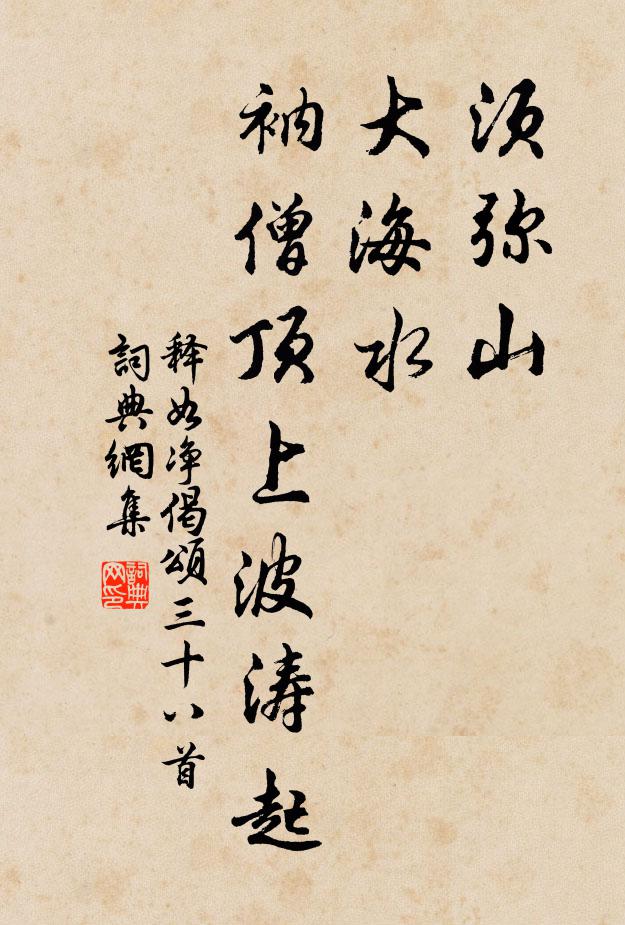 须弥山
大海水
衲僧顶上波涛起
释如净偈頌三十八首
詞典網集
詞典网印